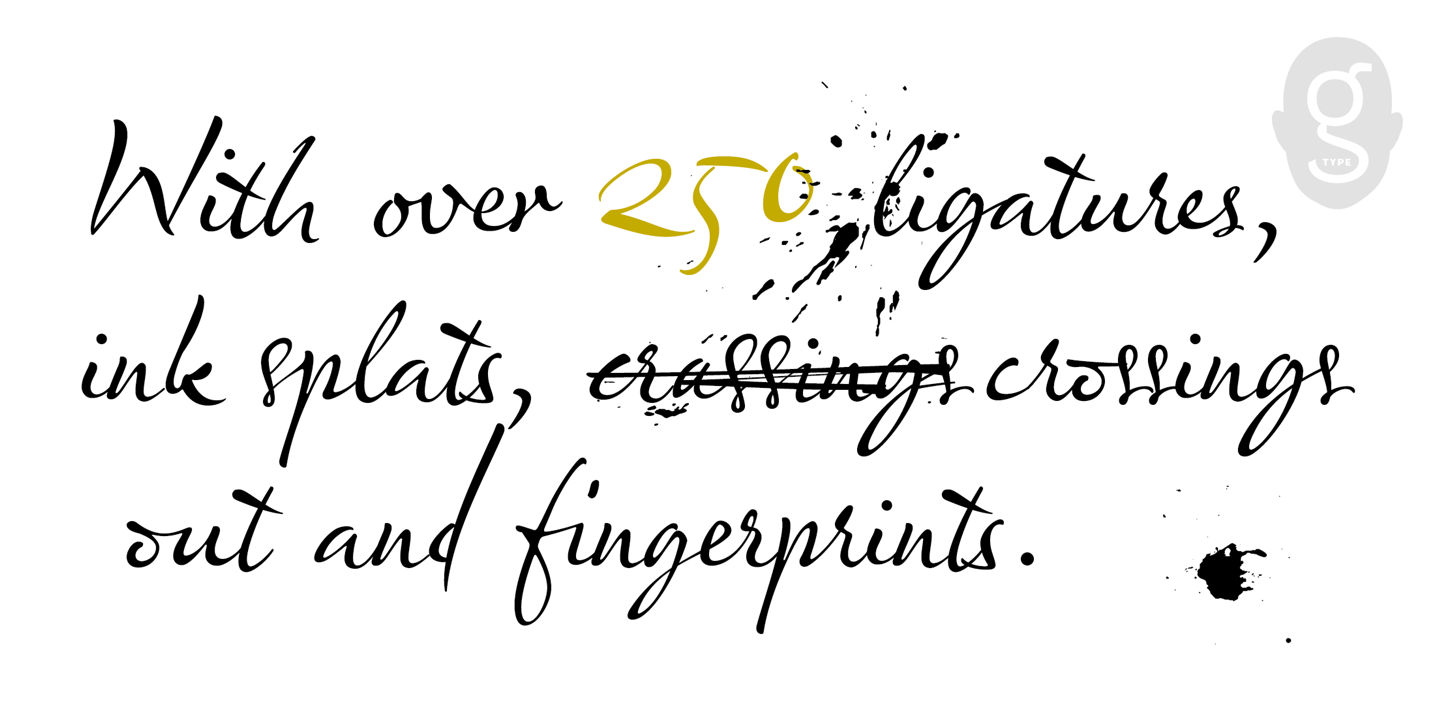 With over 250 ligatures,
ink splats, crassings crossings
out and fingerprints.
g
TYPE